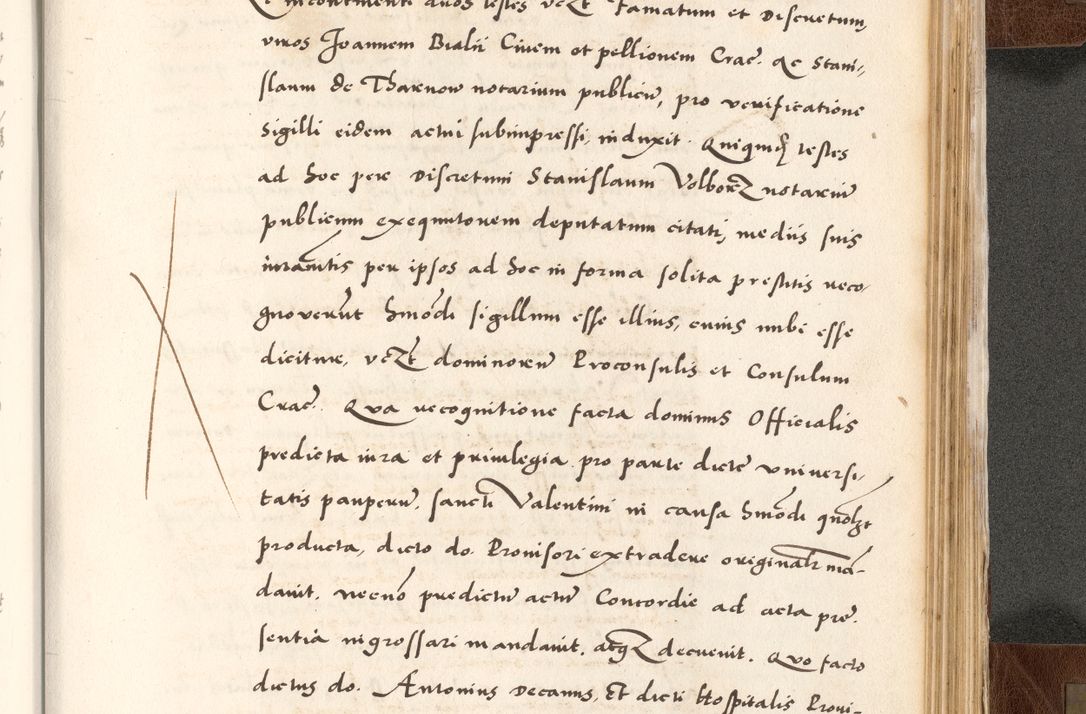 incontinenti duos testes vczt Famatum et Discretum
viros Joannem Bialii Civem et pellionem Crac. ac Stani-
slaum de Tharnow notarium publicum, pro verificatione
sigilli eidem actui subimpressi, induxit. Quiquidem testes
ad hoc per Discretum Stanislaum Volborz notarium
publicum exequutorem deputatum citati, mediis suis
iuramentis per ipsos ad hoc in forma solita prestitis reco-
gnoverunt hmodi sigillum esse illius, cuius inibi esse
dicitur, vczt dominorum Proconsulis et Consulum
Crac. Qua recognitione facta dominus Officialis
predicta iura et privilegia pro parte dicte universi-
tatis pauperum, sancti Valentini in causa hmodi quolzt
producta, dicto do. Provisori extradere originalr man-
davit, necno predictum actum Concordie ad acta pre-
sentia ingrossari mandavit, atqz decrevit. Quo facto
dictus do. Antonius Decanus, Et dicti Hospitalis Provi-